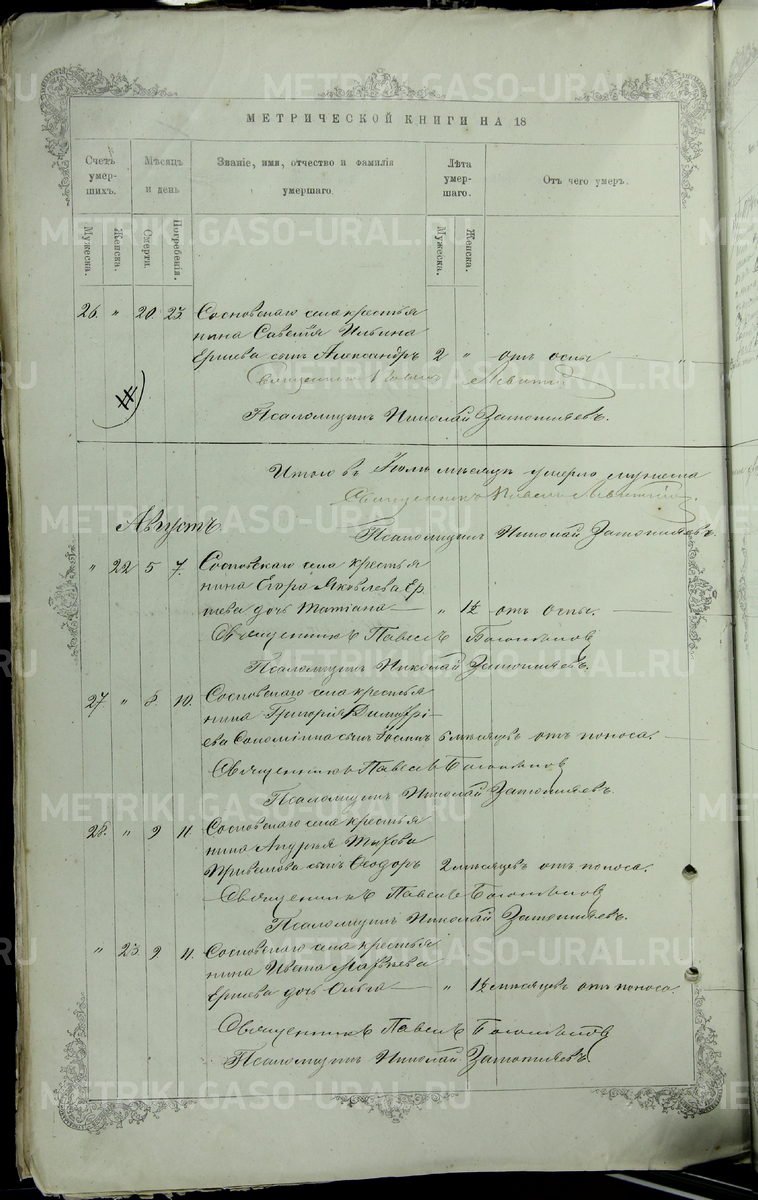 МЕТРИЧЕСКОЙ КНИГИ НА 18
Счетъ умер-шихъ. Мѣсяцъ и день Званіе, имя, отчество и фамилія умершаго. Лѣта умер-шаго. Отъ чего умеръ.
Мужеска. Женска. Смерти. Погребенія. Мужеска. Женска.
26. " 20. 23. Сосновскаго села крестья
нина Савелія Ильина
Ершева сынъ Александръ 2 " отъ оспы "
Священникъ Павелъ
Псаломщикъ Николай Затопляевъ.
Итого въ Іюлѣ мѣсяцѣ умерло мужеска
Священникъ Павелъ
Августъ.
Псаломщикъ Николай Затопляевъ.
" 22 5 7. Сосновскаго села крестья
нина Егора Яковлева Ер
шева дочь Татіана " 1½ отъ оспы.
Священникъ Павелъ Боголѣповъ
Псаломщикъ Николай Затопляевъ.
27 " 8. 10. Сосновскаго села крестья
нина Григорія Димитрі
ева сынъ 6 мѣсяцевъ отъ поноса.
Священникъ Павелъ Боголѣповъ
Псаломщикъ Николай Затопляевъ.
28. " 9 11. Сосновскаго села крестья
нина Андрея
Привалова сынъ Ѳеодоръ 2 мѣсяцевъ отъ поноса.
Священникъ Павелъ Боголѣповъ
Псаломщикъ Николай Затопляевъ.
" 23. 9 11. Сосновскаго села крестья
нина Ивана Матвѣева
Ершева дочь Ольга " 1½ мѣсяцевъ отъ поноса.
Священникъ Павелъ Боголѣповъ
Псаломщикъ Николай Затопляевъ.
METRIKI.GASO-URAL.RU